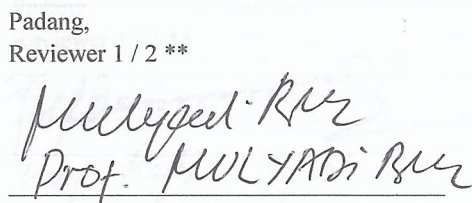 Padang,
Reviewer 1 / 2 **
Mulyadi Bur
Prof. MULYADi Bur